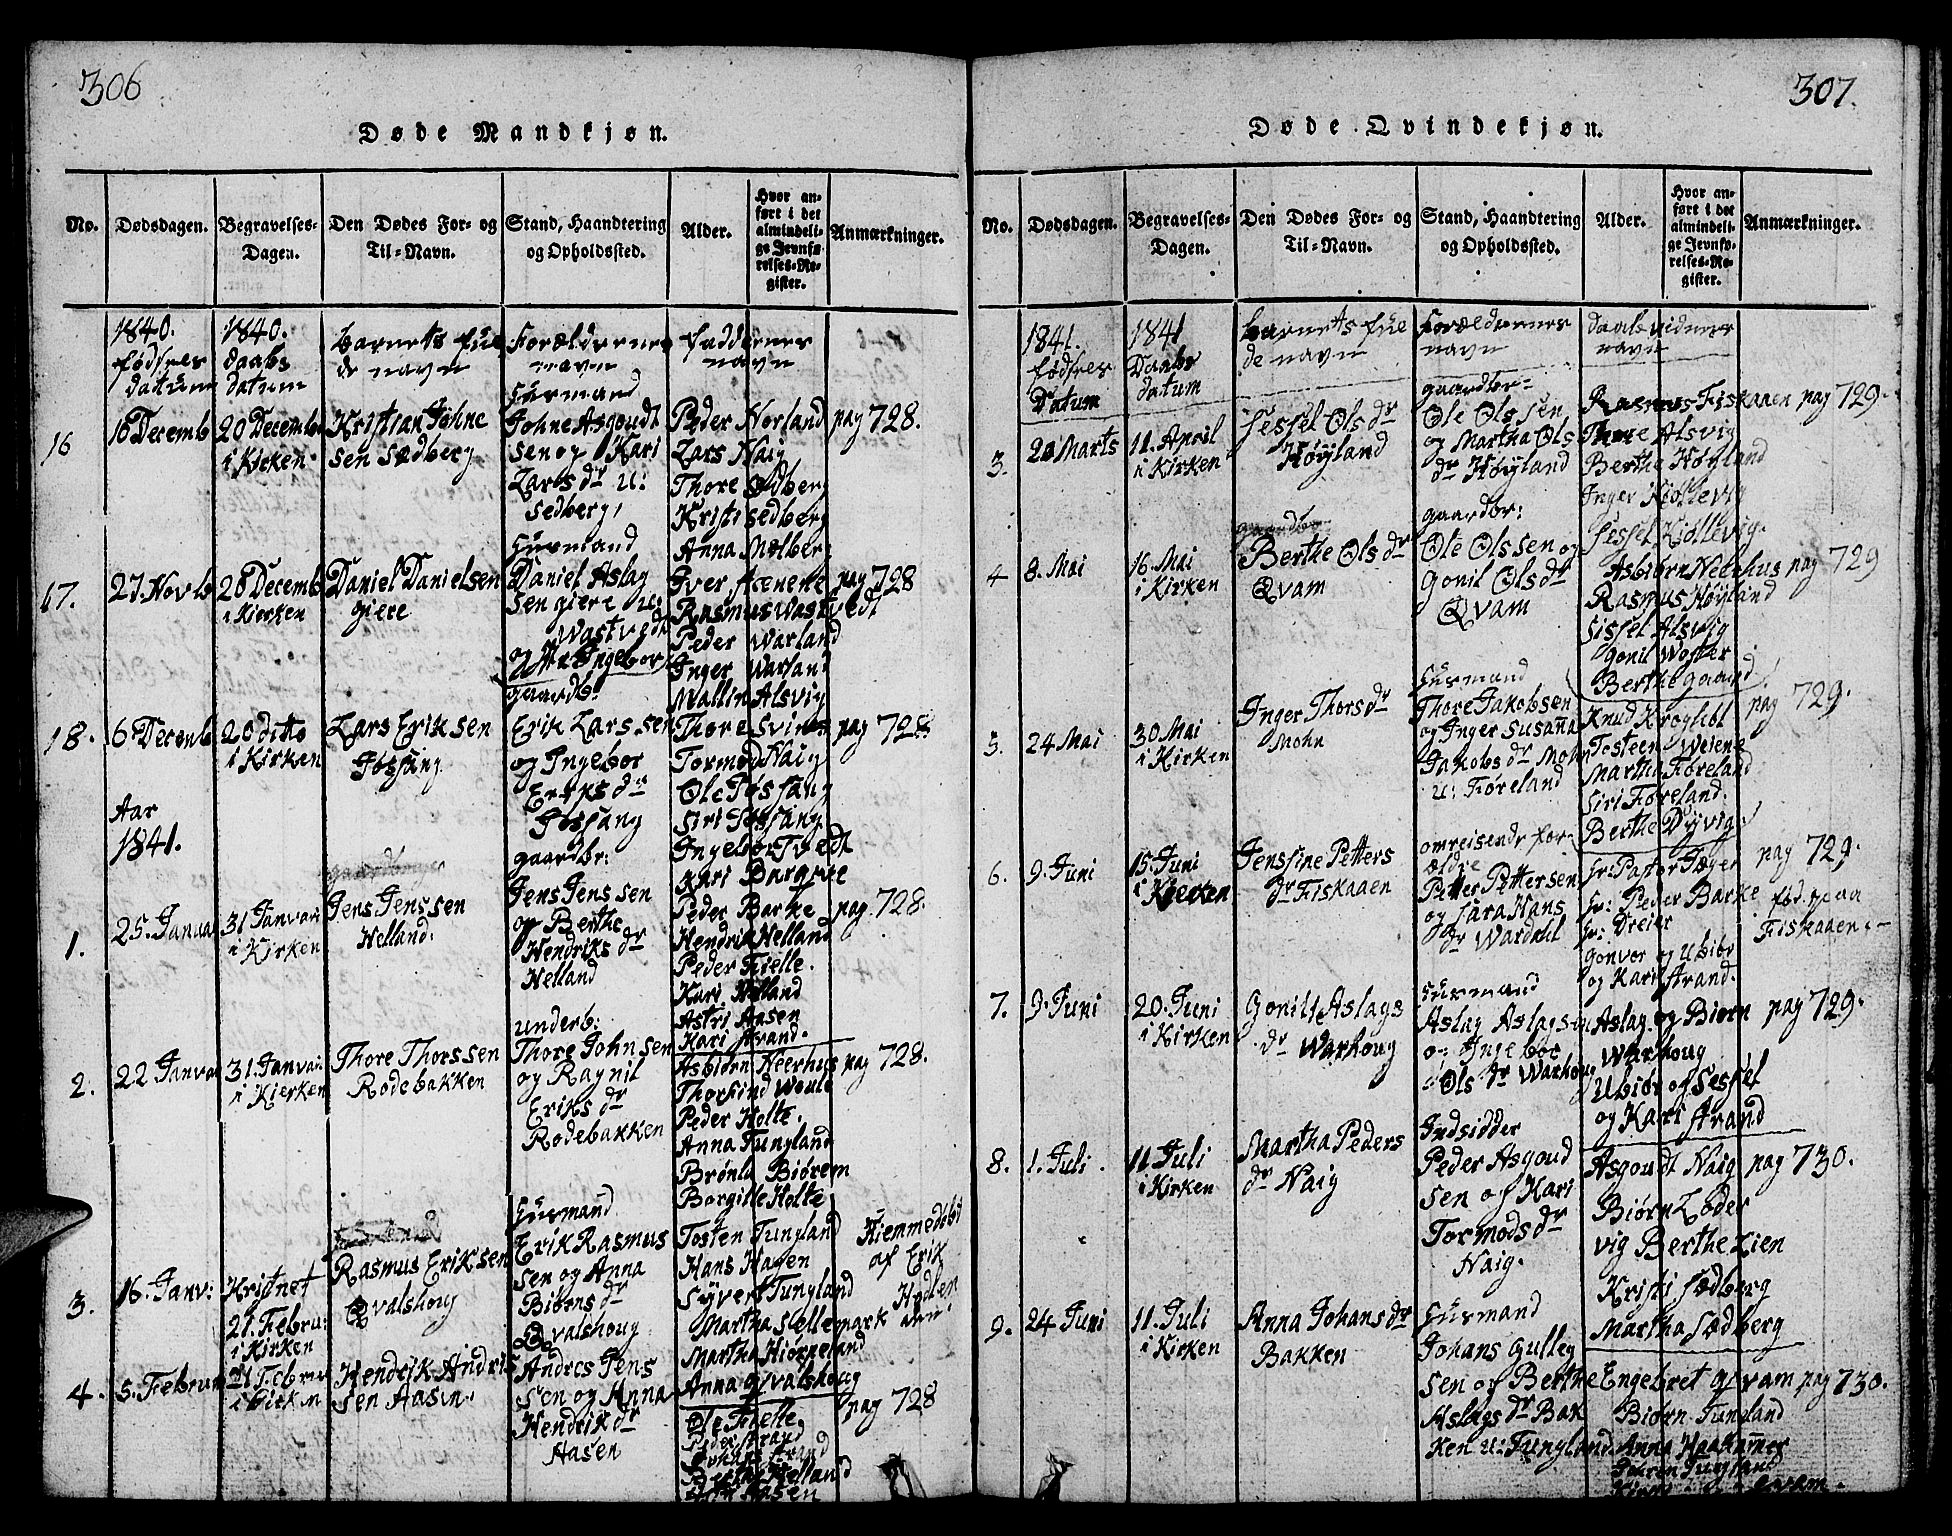 306
Døde Mandkjøn.
No.
Dødsdagen.
Begravelses-
Dagen.
Den Dødes For- og
Til-Navn.
Stand, Haandtering
og Opholdssted.
Alder.
Hvor an-
ført i det
almindeli-
ge Jevnfø-
relses-Re-
gister.
Anmærkninger.
1840.
fødsels
datum
1840.
daabs
datum
barnets ful
de navn
Forælderenes
navn
faddernes
navn
16
18 Decemb
20 Decemb
i Kirken
Kristian Johne
sen Sædberg
Husmand
Johne Asgoudt
sen og Kari
Lars dr u:
Sedberg,
Peder Norland
Lars Naig
Thore Sedberg
Kristi Sedberg
Anna Mælberg
pag 728.
17.
27. Novb
28 Decemb
i Kirken
Daniel Danielsen
giere
Husmand
Daniel Aslag
sen giere u:
Wastvedt
og Ingebor
Iver
Rasmus Wastvedt
Peder Warland
Inger Warland
Mallin Alsvig
pag 728
18.
6 Decemb
20 ditto
i Kirken
Lars Eriksen
Jøssang
gaardb:
Erik Larssen
og Ingebor
Eriks dr
Jøssang
Thore Svines
Tormod Naig
Ole Jøssang
Siri Jøssang
Ingebor Tvedt
pag 728
Aar
1841.
1.
25. Januar
31 Januari
i Kirken
Jens Jenssen
Helland.
gaardbr:
Jens Jenssen
og Berthe
Hendriks dr
Helland
Kari
Peder Barke
Hendrik Helland
Peder Fielle.
Kari Helland
Astri Aasen
Kari Strand.
pag. 728.
2.
22. Januar
31. Januari
i Kierken
Thore Thorssen
Rodebakken
underb:
Thore Johnsen
og Ragnil
Eriks dr
Rodebakken
Asbiørn Neerhus
Thorkind Woule
Peder Holte.
Anna Tungland
Brønla Biørem
Borgille Holte
pag 728.
3.
16. Janv:
Kristnet
21. Febru:
i Kirken
Rasmus Eriksen
Qvalshoug
Husmand
Erik Rasmus
sen og Anna
Biørns dr
Qvalshoug
Tosten Tungland
Hans Hagen
Syvert Tungland
Martha Selle
Martha Hiorteland
Anna Qvalshoug
Hiemmedøbt
af Erik
mark
4.
5. Februa
21 Februar
i Kirken
Hendrik Andris
sen Aasen.
Andres Jens
sen og Anna
Hendrik dr
Aasen
Ole Fielle
Peder Strand
Strand
Berthe Helland
Aasen
pag 728
307.
Døde Qvindekjøn.
No.
Dødsdagen.
Begravelses-
Dagen.
Den Dødes For- og
Til-Navn.
Stand, Haandtering
og Opholdssted.
Alder.
Hvor an-
ført i det
almindeli-
ge Jevnfø-
relses-Re-
gister.
Anmærkninger.
1841.
fødsels
Datum
1841
Daabs
datum
barnets ful
de navn
Forældernes
navn
daabsvidners
navn
3.
21 Marts
11. April
i Kirken
Sessel Ols dr
Høyland
gaardbr:
Ole Olssen
og Martha Ols
dr Høyland
Rasmus Fiskaaen
Thore Alsvig
Berthe Høyland
Inger Kiollevig
Sessel Kiollevig.
pag 729.
4
8. Mai
16. Mai
i Kirken
Berthe Ols dr
Qvam
gaardbr:
Ole Olssen og
Gonil Ols dr
Qvam
Asbiørn Neerhus
Rasmus Høyland
Sissel Alsvig
Gonil Woster
Berthe gaard
pag 729
5.
24 Mai
30. Mai
i Kirken
Inger Thors dr
Mohn
Husmand
Thore Jakobsen
og Inger Susanna
Jakobs dr Mohn
u: Føreland
Knud Kroghol
Tosteen Weiene
Martha Føreland
Siri Føreland.
Berthe Dyvig.
pag 729.
6.
9. Juni
15. Juni
i Kierken
Jenssine Petters
dr Fiskaaen
omreisende for
ældre
Petter Pettersen
og Sara Hans
dr Wardnul
hr: Pastor Jæger
hr: Peder Barke
hr: Dreier
gonvor og Ubiør
og Kari Strand.
pag 729.
fød. paa
Fiskaaen.-
7.
9. Juni
20. Juni
i Kirken
Gonill Aslags
dr Warhoug
Husmand
Aslag Aslags-en
og Ingebor
Ols dr Warhoug
Aslag. og Biørn
Warhoug
Ubiør of Sessel
og Kari Strand
pag 729.
8.
1. Juli.
11 Juli
i Kirken
Martha Peders
dr Naig
Indsidder
Peder Asgoud
sen of Kari
Tormods dr
Naig.
Asgoudt Naig
Biørn Løder
vig Berthe Lien
Kristi Sædberg
Martha Sædberg
pag 730.
9.
24 Juni
11. Juli
i Kirken
Anna Johans dr
Bakken
Husmand
Johans Gulleg
sen of Berthe
Aslags dr Bak
ken u: Tungland.
Engebret Qvam
Biørn Tungland
Anna Haakamer
Tungland
pag 730.